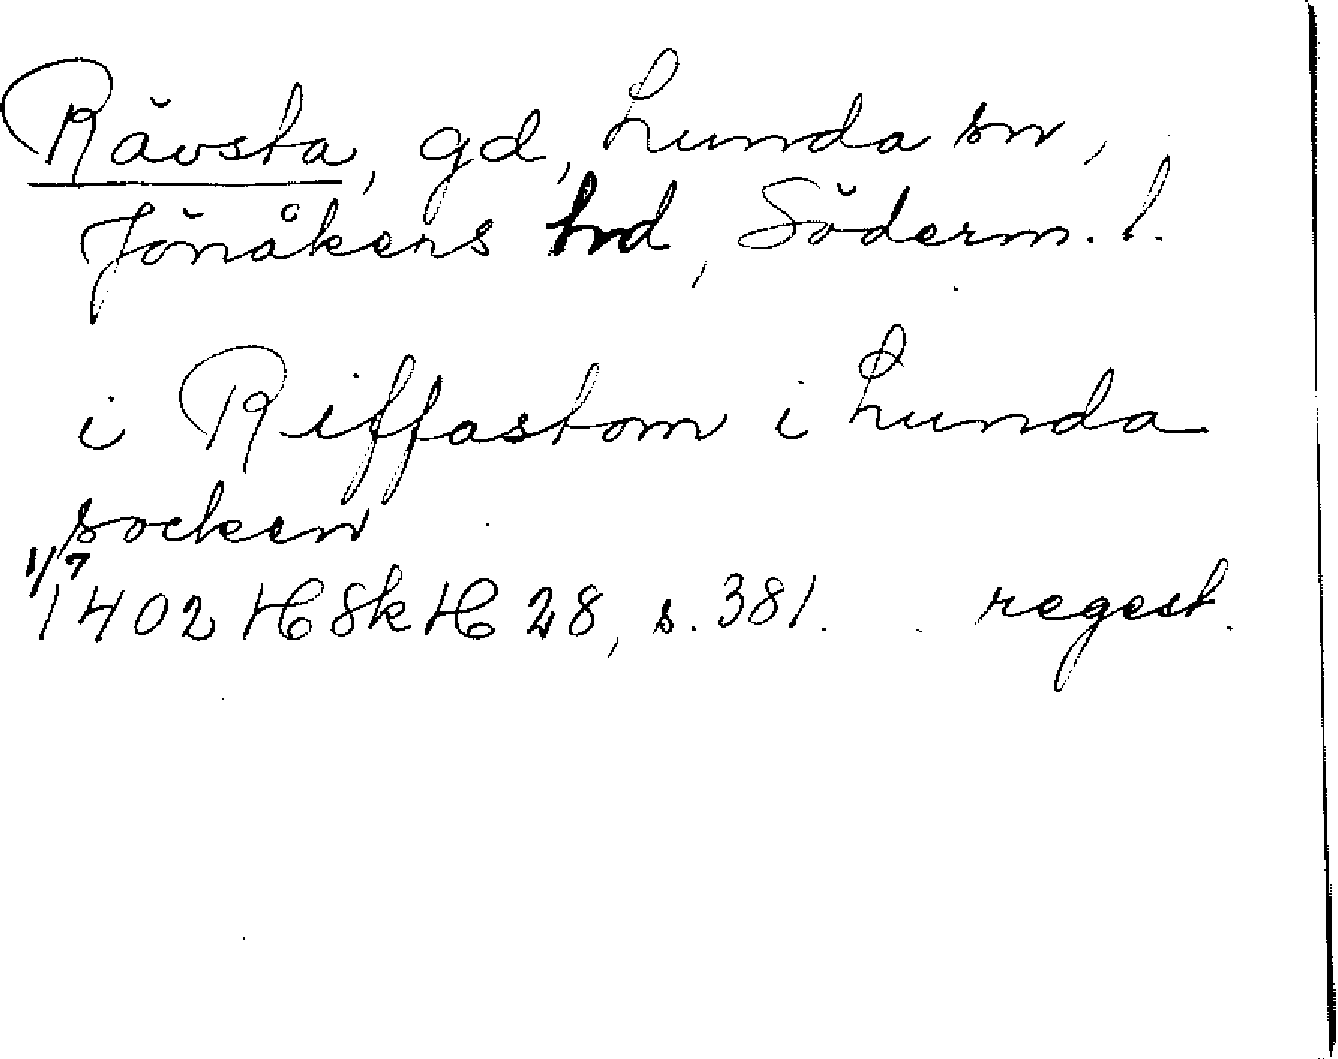 Rävsta, gd, Lunda sn,
Jönåkers hd, Söderm. l.
i Riffastom i Lunda
socken
1/7
1402 HSkH 28, s. 381. regest.